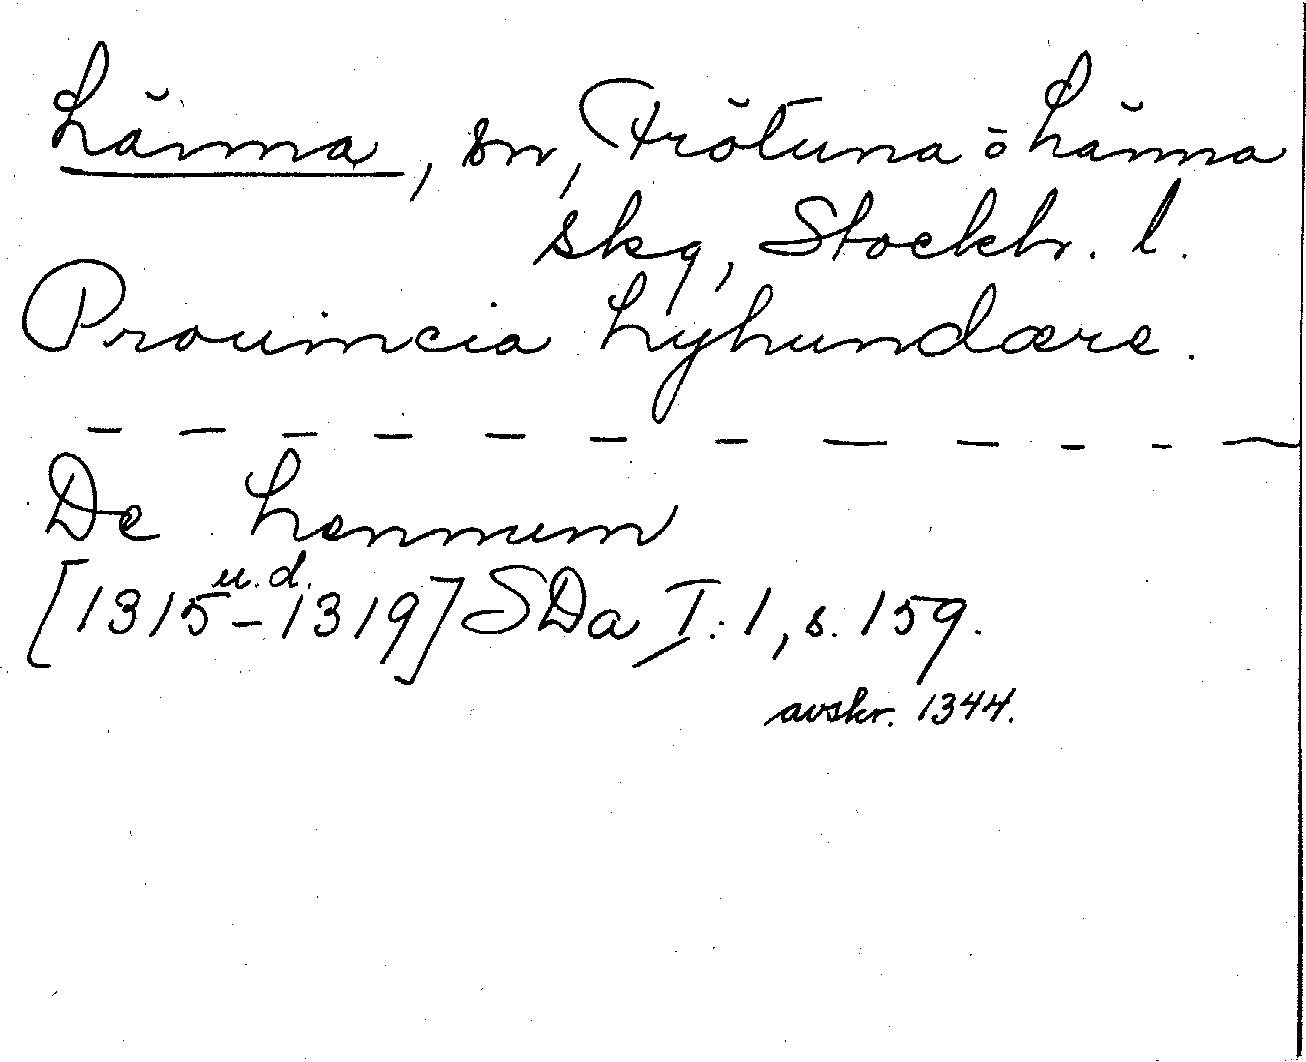 Länna, sn, Frötuna o Länna
skg, Stockh. l.
Prouincia Lyhundære.
— — — — — — — — — — — —
De Lennum
[1315 u.d. -1319] SDa I:1, s. 159.
avskr. 1344.